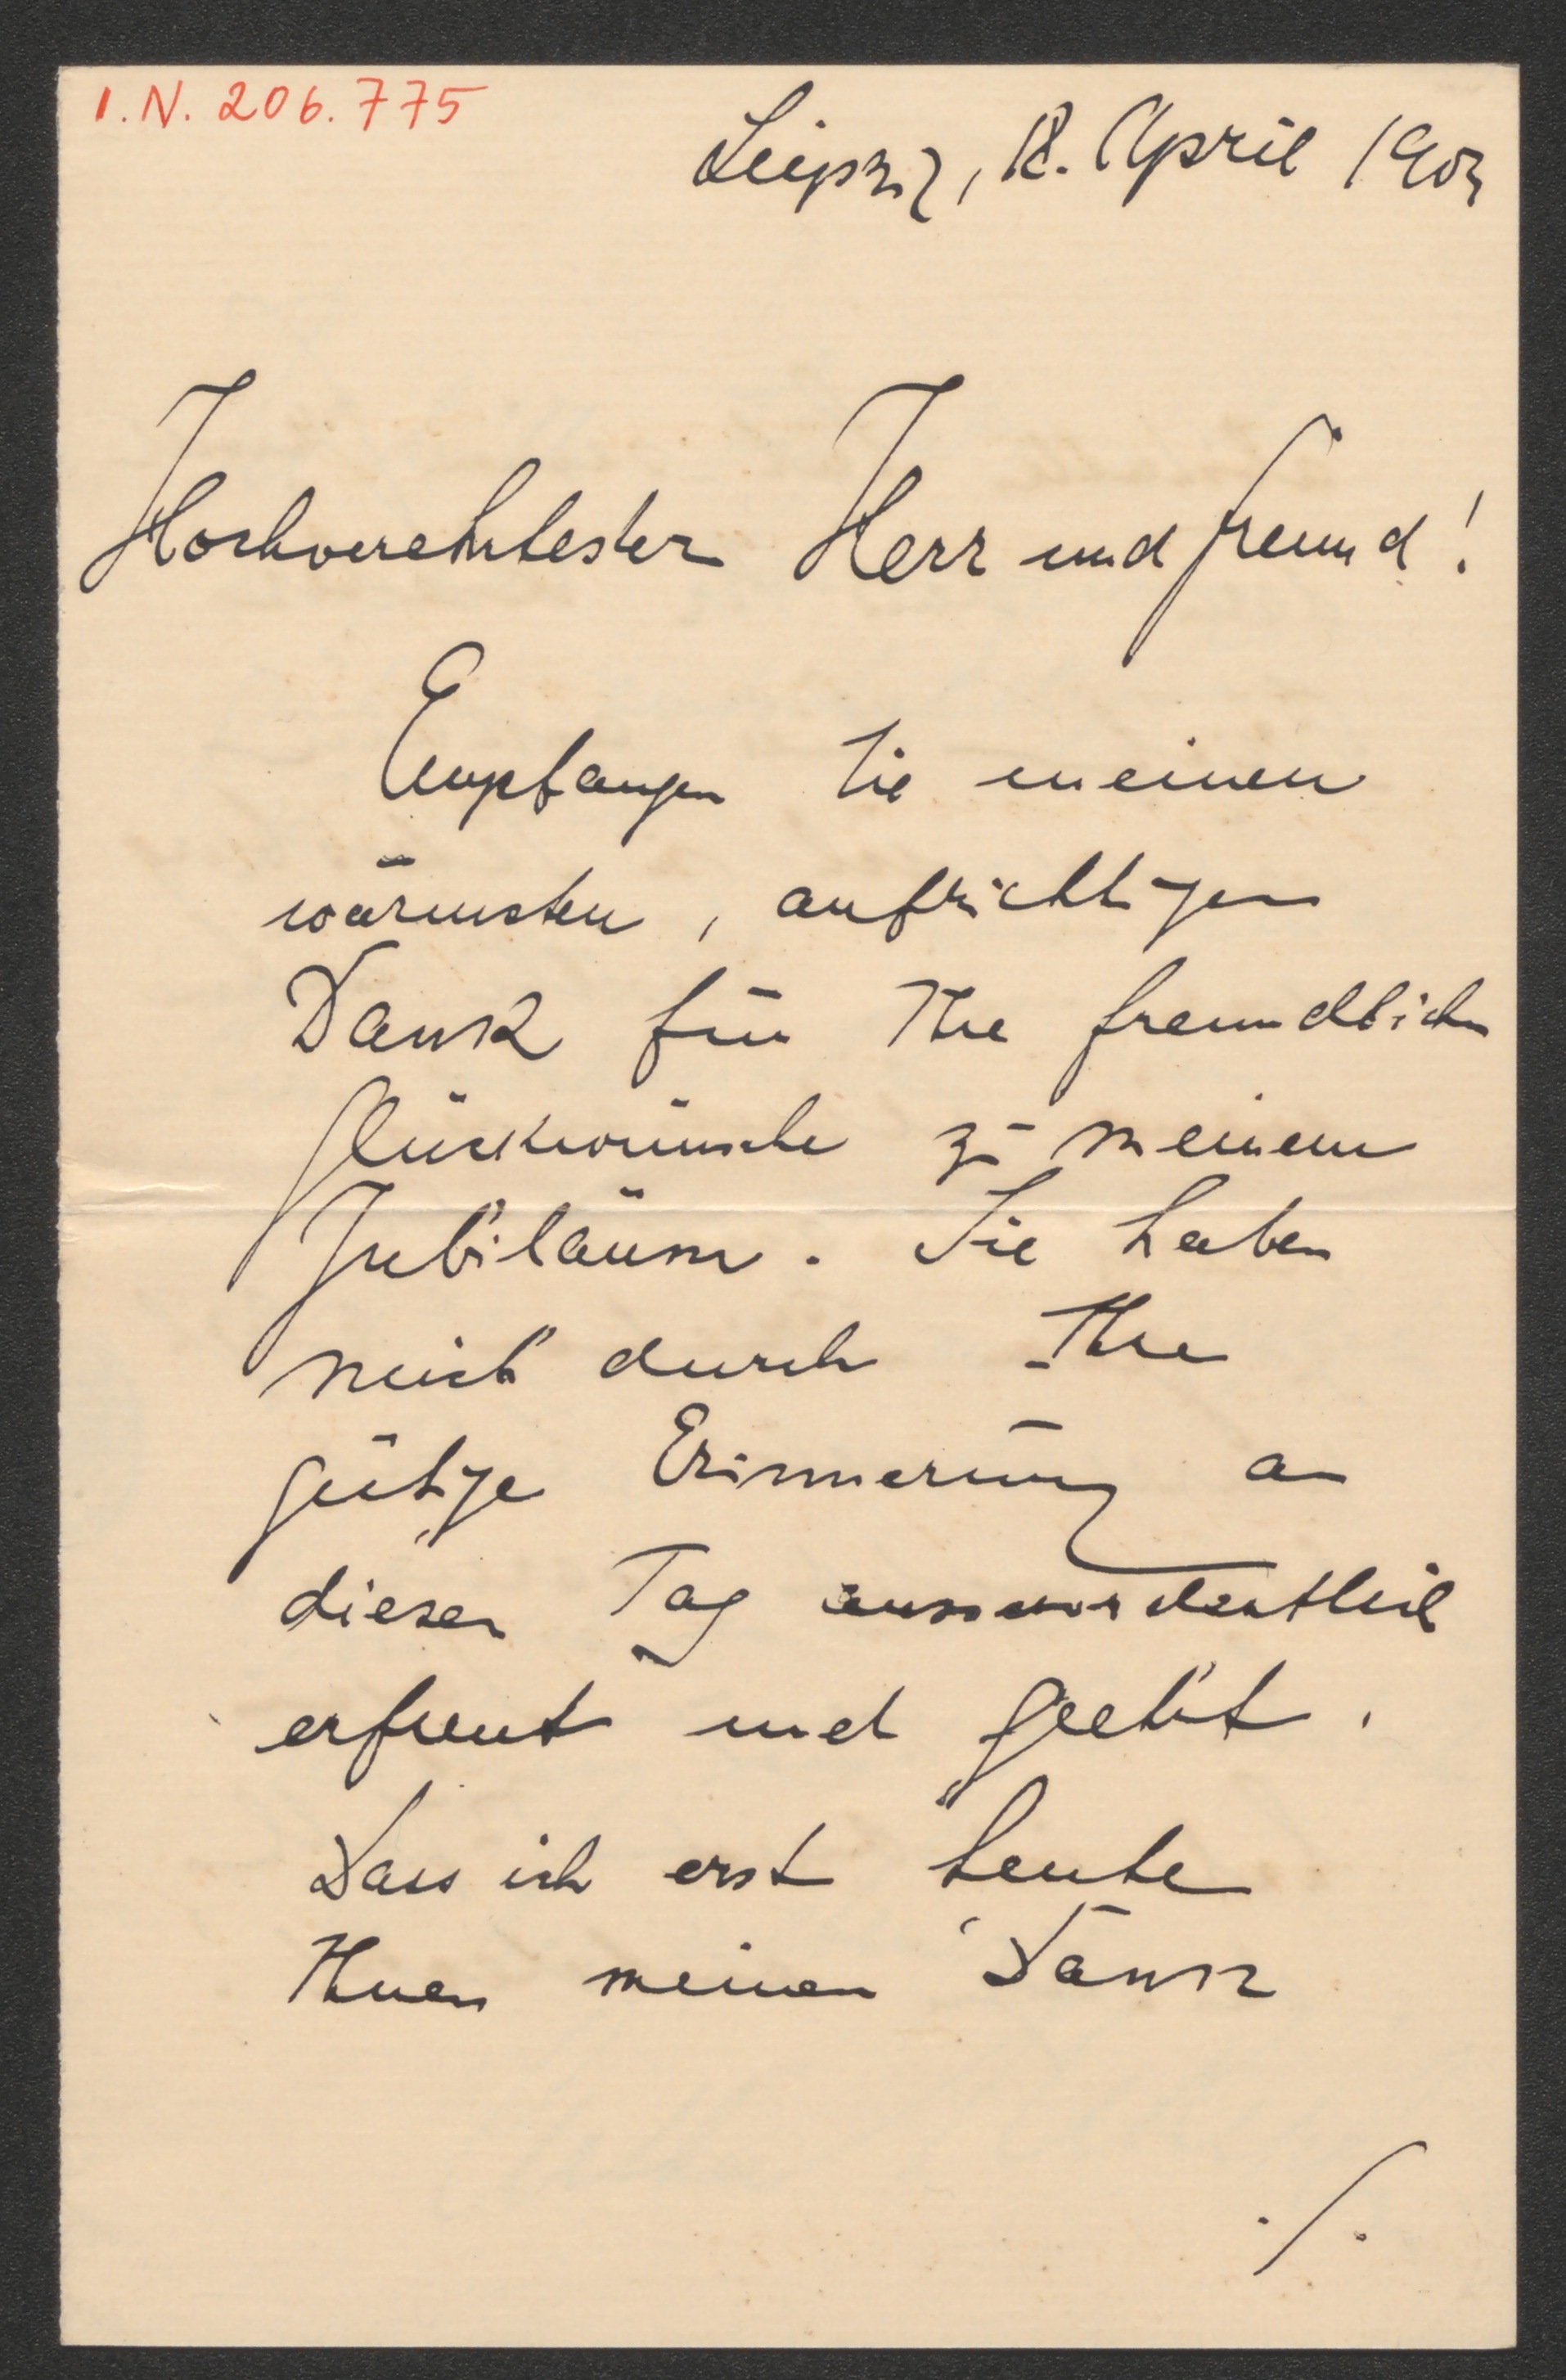 I.N. 206.775
Leipzig, 18. April 1903
Hochverehrtester Herr und Freund!
Empfangen Sie meinen
wärmsten, aufrichtigen
Dank für Ihre freundlichen
Glückwünsche zu meinem
Jubiläum. Sie haben
mich durch Ihre
gütige Erinnerung an
diesen Tag ausserordentlich
erfreut und geehrt.
Dass ich erst heute
Ihnen meinen Dank
./.